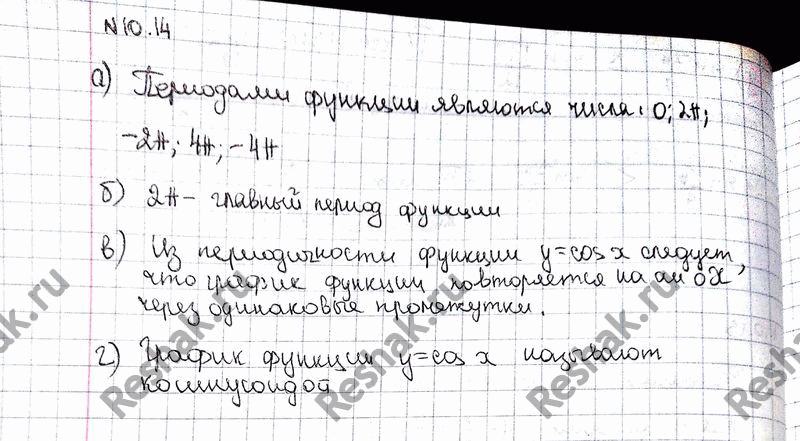 N10.14
а) Периодами функции являются числа: 0; 2π;
-2π; 4π; -4π
б) 2π - главный период функции
в) Из периодичности функции y=cos x следует,
что график функции повторяется на оси OX
через одинаковые промежутки.
г) График функции y=cos x называют
косинусоидой
Reshak.ru
Reshak.ru
Reshak.ru
Reshak.ru
Reshak.ru